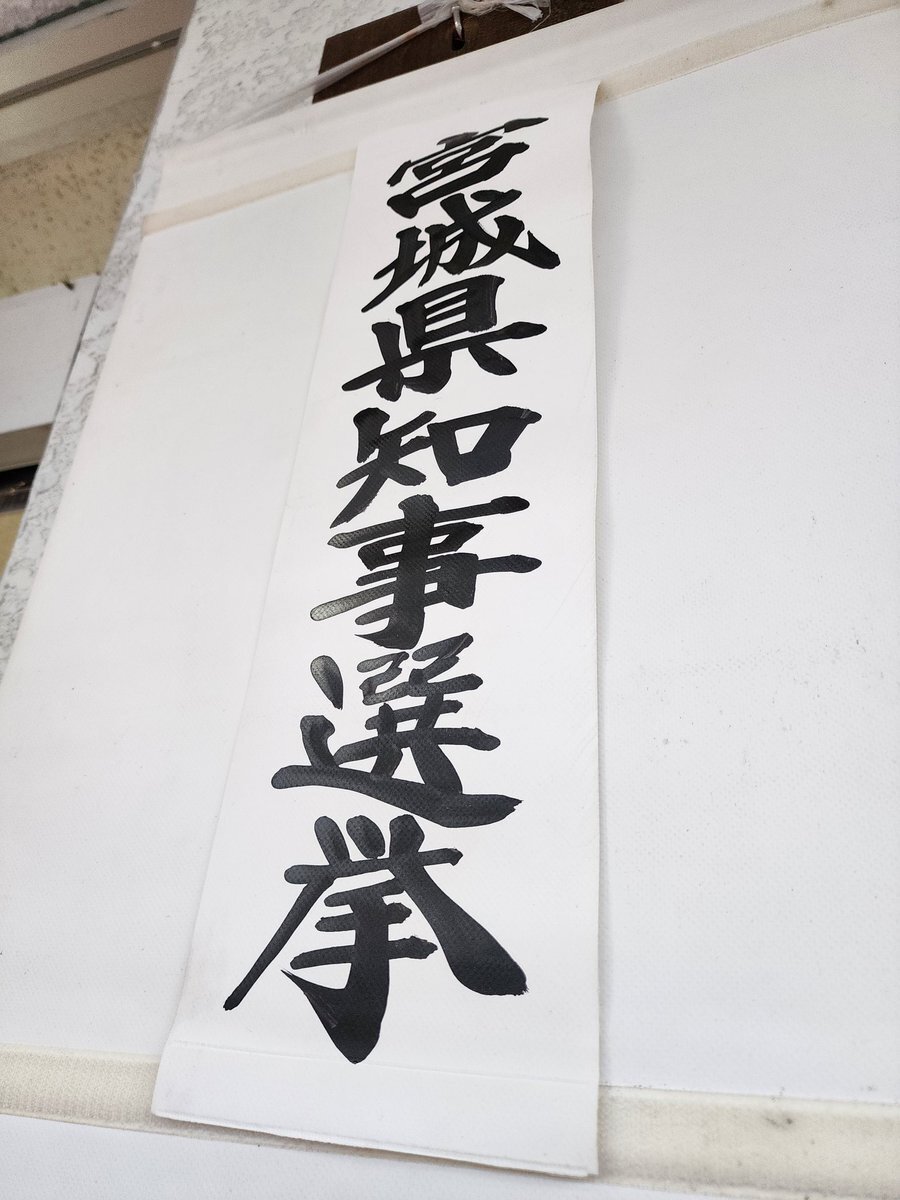 宮城県知事選挙